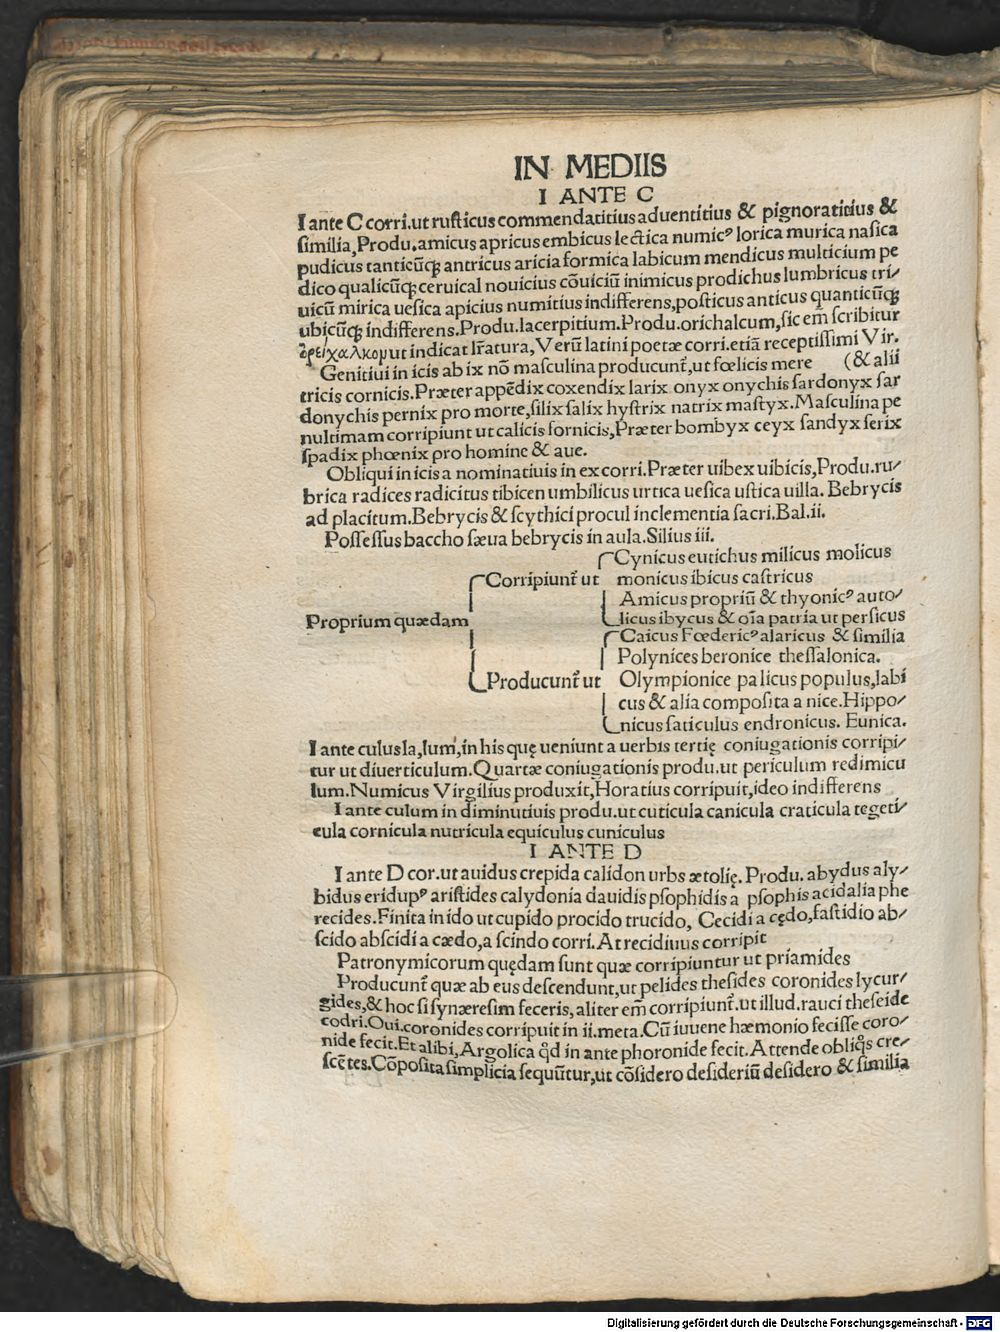 IN MEDIIS
I ANTE C
I ante C corri.ut rusticus commendatitius aduentitius & pignoratitius &
similia,Produ.amicus apricus embicus lectica numicꝰ lorica murica nasica
pudicus tanticūqȝ antricus aricia formica labicum mendicus multicium pe
dico qualicūqȝ ceruical nouicius cōuiciū inimicus prodichus lumbricus tri/
uicū mirica uesica apicius numitius indifferens,posticus anticus quanticūqȝ
ubicūqȝ indifferens.Produ.lacerpitium.Produ.orichalcum,sic em̄ scribitur
ὀρείχαλκομ ut indicat lr̄atura, Verū latini poetæ corri.etiā receptissimi Vir.
Genitiui in icis ab ix nō masculina producunt̄,ut fœlicis mere (& alii
tricis cornicis.Præter appēdix coxendix larix onyx onychis sardonyx sar
donychis pernix pro morte,silix salix hystrix natrix mastyx.Masculina pe
nultimam corripiunt ut calicis fornicis,Præter bombyx ceyx sandyx serix
spadix phœnix pro homine & aue.
Obliqui in icis a nominatiuis in ex corri.Præter uibex uibicis,Produ.ru/
brica radices radicitus tibicen umbilicus urtica uesica ustica uilla. Bebrycis
ad placitum.Bebrycis & scythici procul inclementia sacri.Bal.ii.
Possessus baccho sæua bebrycis in aula.Silius iii.
Cynicus eutichus milicus molicus
Corripiunt̄ ut monicus ibicus castricus
Amicus propriū & thyonicꝰ auto/
Proprium quædam licus ibycus & oīa patria ut persicus
Caicus Fœdericꝰ alaricus & similia
Polynices beronice thessalonica.
Producunt̄ ut Olympionice palicus populus,labi
cus & alia composita a nice.Hippo/
nicus saticulus endronicus. Eunica.
I ante culus la,lum,in his quę ueniunt a uerbis tertię coniugationis corripi/
tur ut diuerticulum.Quartæ coniugationis produ.ut periculum redimicu
lum.Numicus Virgilius produxit,Horatius corripuit,ideo indifferens
I ante culum in diminutiuis produ.ut cuticula canicula craticula tegeti/
cula cornicula nutricula equiculus cuniculus
I ANTE D
I ante D cor.ut auidus crepida calidon urbs ætolię. Produ. abydus aly/
bidus eridupꝰ aristides calydonia dauidis psophidis a psophis acidalia phe
recides.Finita in ido ut cupido procido trucido, Cecidi a cędo,fastidio ab/
scido abscidi a cædo,a scindo corri.At recidiuus corripit
Patronymicorum quędam sunt quæ corripiuntur ut priamides
Producunt̄ quæ ab eus descendunt,ut pelides thesides coronides lycur/
gides,& hoc si synæresim feceris,aliter em̄ corripiunt̄.ut illud.rauci theseide
codri.Oui.coronides corripuit in ii.meta.Cū iuuene hæmonio fecisse coro/
nide fecit.Et alibi,Argolica qd̄ in ante phoronide fecit.Attende obliq̄s cre/
scētes.Cōposita simplicia sequūtur,ut cōsidero desideriū desidero & similia
Digitalisierung gefördert durch die Deutsche Forschungsgemeinschaft - DFG